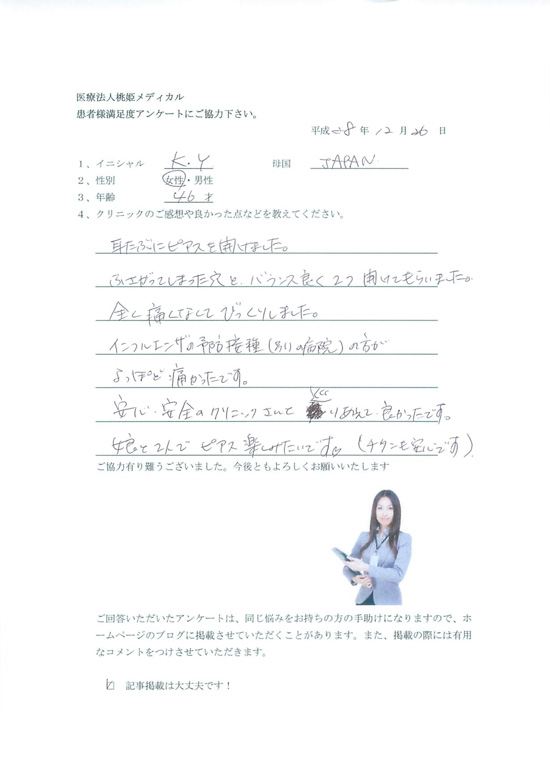 医療法人桃姫メディカル
患者様満足度アンケートにご協力下さい。
平成28年12月26日
1、イニシャル K.Y 母国 JAPAN
2、性別 女性・男性
3、年齢 46才
4、クリニックのご感想や良かった点などを教えてください。
耳たぶにピアスを開けました。
ふさがってしまった穴と、バランス良く2つ開けてもらいました。
全く痛くなくてびっくりしました。
インフルエンザの予防接種(別の病院)の方が
よっぽど痛かったです。
安心・安全のクリニックさんと めぐりあえて良かったです。
娘と2人でピアス楽しみたいです。(チタンも安心です)
ご協力有り難うございました。今後ともよろしくお願いいたします
ご回答いただいたアンケートは、同じ悩みをお持ちの方の手助けになりますので、ホ
ームページのブログに掲載させていただくことがあります。また、掲載の際には有用
なコメントをつけさせていただきます。
☑ 記事掲載は大丈夫です!